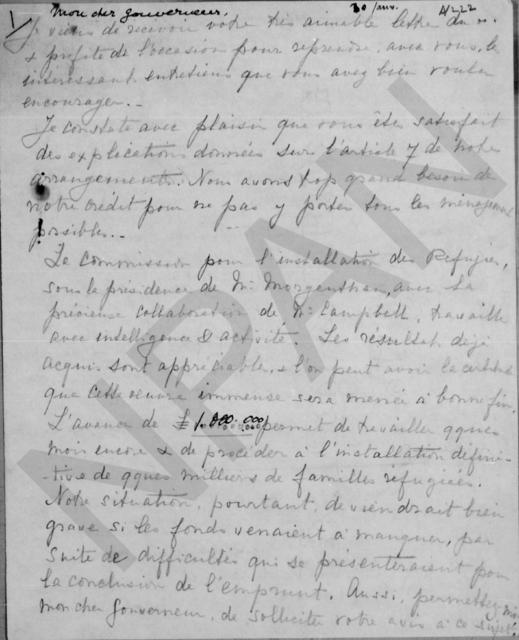 30/janv. 4/222
1/ Mon cher gouverneur,
Je viens de recevoir votre très aimable lettre du
& profite de l'occasion pour reprendre, avec vous, les
intéressants entretiens que vous avez bien voulu
encourager. -
Je constate avec plaisir que vous êtes satisfait
des explications données sur l'article 7 de nos
arrangements. Nous avons trop grand besoin de
notre crédit pour ne pas y porter tous les ménagements
possibles. -
La Commission pour l'installation des Réfugiés,
sous la présidence de Mr Morgenthau, avec la
précieuse collaboration de Mr Campbell, travaille
avec intelligence & activité. Les résultats déjà
acquis sont appréciables & l'on peut avoir la certitude
que cette oeuvre immense sera menée à bonne fin.
L'avance de £ 1.000.000 permet de travailler qques
mois encore & de procéder à l'installation défini-
tive de qques milliers de familles réfugiées.
Notre situation, pourtant, deviendrait bien
grave si les fonds venaient à manquer, par
suite de difficultés qui se présenteraient pour
la conclusion de l'emprunt. Aussi, permettez moi
mon cher Gouverneur, de solliciter votre avis à ce sujet
NPAN